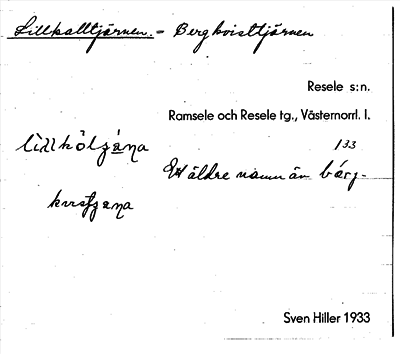 Lillkalltjärnen. = Bergkvisttjärnen
Resele s:n.
Ramsele och Resele tg., Västernorrl. l.
133
Ett äldre namn än
Sven Hiller 1933